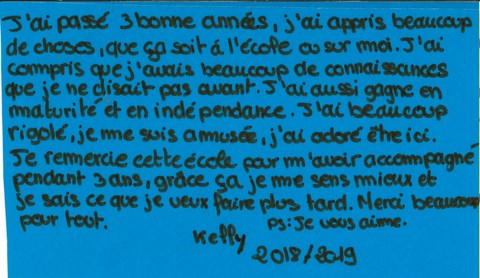 J'ai passé 3 bonne années, j'ai appris beaucoup
de choses, que ça soit à l'école ou sur moi. J'ai
compris que j'avais beaucoup de connaissances
que je ne disait pas avant. J'ai aussi gagne en
maturité et en indépendance. J'ai beaucoup
rigolé, je me suis amusée, j'ai adoré être ici.
Je remercie cette école pour m'avoir accompagné
pendant 3 ans, grâce ça je me sens mieux et
je sais ce que je veux faire plus tard. Merci beaucoup
pour tout. Ps: Je vous aime.
Kelly
2018/2019